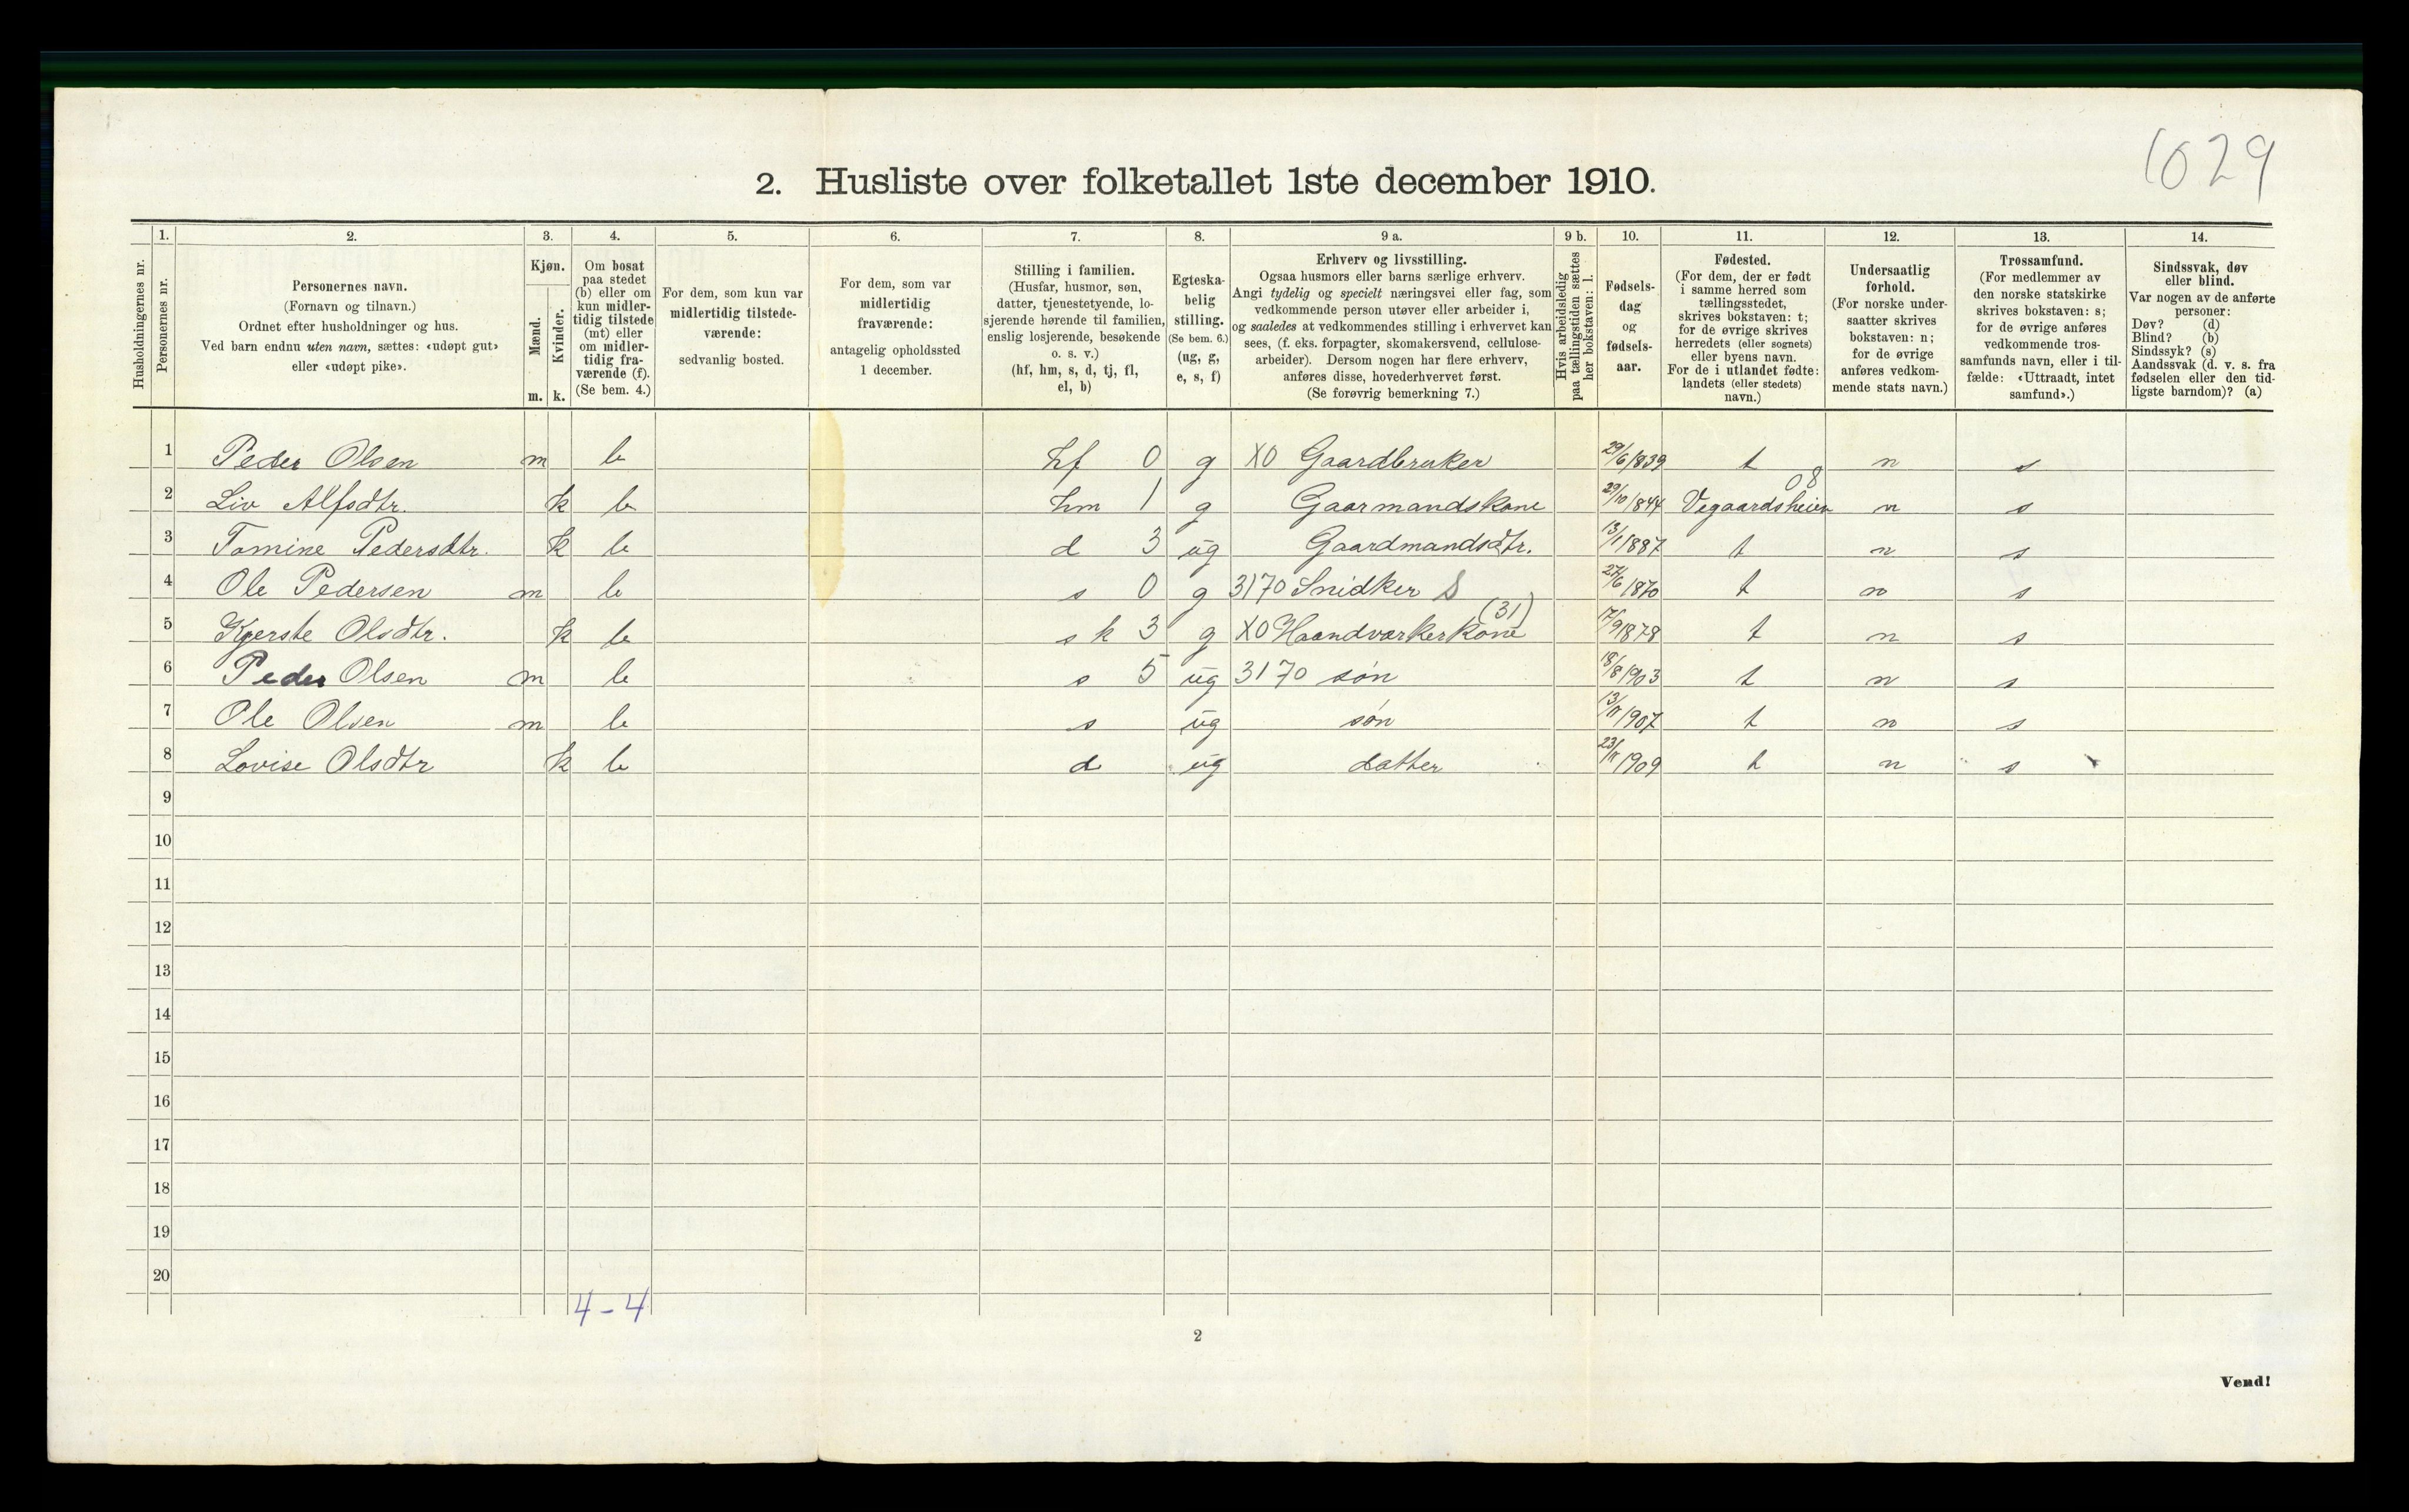 1029
2. Husliste over folketallet 1ste december 1910.
Husholdningernes nr.
1.
Personernes nr.
2.
Personernes navn.
(Fornavn og tilnavn.)
Ordnet efter husholdninger og hus.
Ved barn endnu uten navn, sættes: «udøpt gut»
eller «udøpt pike».
3.
Kjøn.
Mænd.
Kvinder.
m. k.
4.
Om bosat
paa stedet
(b) eller om
kun midler-
tidig tilstede
(mt) eller
om midler-
tidig fra-
værende (f).
(Se bem. 4.)
5.
For dem, som kun var
midlertidig tilstede-
værende:
sedvanlig bosted.
6.
For dem, som var
midlertidig
fraværende:
antagelig opholdssted
1 december.
7.
Stilling i familien.
(Husfar, husmor, søn,
datter, tjenestetyende, lo-
sjerende hørende til familien,
enslig losjerende, besøkende
o. s. v.)
(hf, hm, s, d, tj, fl,
el, b)
8.
Egteska-
belig
stilling.
(Se bem. 6.)
(ug, g,
e, s, f)
9 a.
Erhverv og livsstilling.
Ogsaa husmors eller barns særlige erhverv.
Angi tydelig og specielt næringsvei eller fag, som
vedkommende person utøver eller arbeider i,
og saaledes at vedkommendes stilling i erhvervet kan
sees, (f. eks. forpagter, skomakersvend, cellulose-
arbeider). Dersom nogen har flere erhverv,
anføres disse, hovederhvervet først.
(Se forøvrig bemerkning 7.)
9 b.
Hvis arbeidsledig
paa tællingstiden sættes
her bokstaven: l.
10.
Fødsels-
dag
og
fødsels-
aar.
11.
Fødested.
(For dem, der er født
i samme herred som
tællingsstedet,
skrives bokstaven: t;
for de øvrige skrives
herredets (eller sognets)
eller byens navn.
For de i utlandet fødte:
landets (eller stedets)
navn.)
12.
Undersaatlig
forhold.
(For norske under-
saatter skrives
bokstaven: n;
for de øvrige
anføres vedkom-
mende stats navn.)
13.
Trossamfund.
(For medlemmer av
den norske statskirke
skrives bokstaven: s;
for de øvrige anføres
vedkommende tros-
samfunds navn, eller i til-
fælde: «Uttraadt, intet
samfund».)
14.
Sindssvak, døv
eller blind.
Var nogen av de anførte
personer:
Døv? (d)
Blind? (b)
Sindssyk? (s)
Aandssvak (d. v. s. fra
fødselen eller den tid-
ligste barndom)? (a)
1 Peder Olsen m b hf 0 g X0 Gaardbruker 29/6 1839 t n s
2 Liv Alfsdtr. k b hm 1 g Gaarmandskone 29/10 1844 Vegaardsheien 08 n s
3 Tomine Pedersdtr. k b d 3 ug Gaardmandsdtr. 13/1 1887 t n s
4 Ole Pedersen m b s 0 g 3170 Snidker S 27/6 1870 t n s
5 Kjerste Olsdtr. k b s k 3 g X0 Haandværkerkone (31) 17/9 1878 t n s
6 Peder Olsen m b s 5 ug 3170 søn 18/8 1903 t n s
7 Ole Olsen m b s ug søn 13/11 1907 t n s
8 Lovise Olsdtr k b d ug datter 23/11 1909 t n s
9
10
11
12
13
14
15
16
17
18
19
20
4-4
2
Vend!